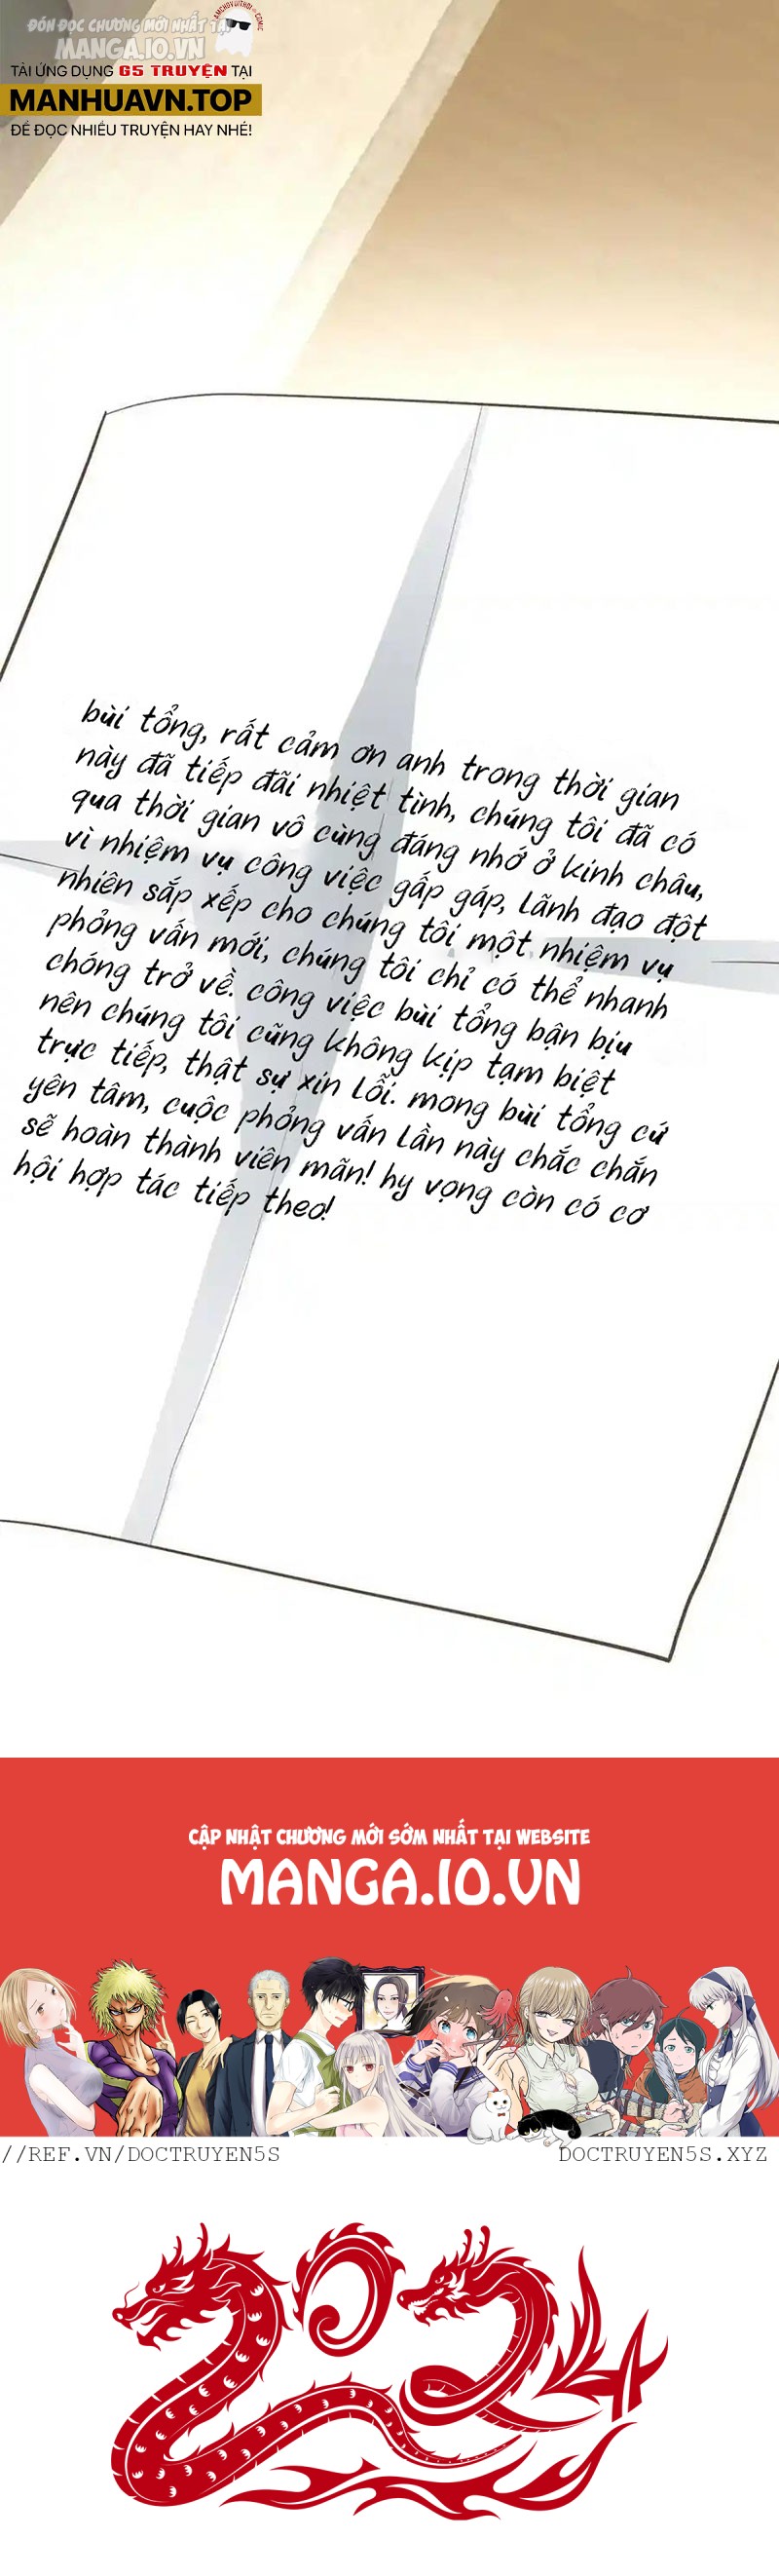 ĐÓN ĐỌC CHƯƠNG MỚI NHẤT TẠI
MANGA.IO.VN
TẢI ỨNG DỤNG G5 TRUYỆN TẠI
MANHUAVN.TOP
ĐỂ ĐỌC NHIỀU TRUYỆN HAY NHÉ!
bùi tổng, rất cảm ơn anh trong thời gian
này đã tiếp đãi nhiệt tình, chúng tôi đã có
qua thời gian vô cùng đáng nhớ ở kinh châu,
vì nhiệm vụ công việc gấp gáp, lãnh đạo đột
nhiên sắp xếp cho chúng tôi một nhiệm vụ
phỏng vấn mới, chúng tôi chỉ có thể nhanh
chóng trở về. công việc bùi tổng bận bịu
nên chúng tôi cũng không kịp tạm biệt
trực tiếp, thật sự xin lỗi. mong bùi tổng cứ
yên tâm, cuộc phỏng vấn lần này chắc chắn
sẽ hoàn thành viên mãn! hy vọng còn có cơ
hội hợp tác tiếp theo!
CẬP NHẬT CHƯƠNG MỚI SỚM NHẤT TẠI WEBSITE
MANGA.IO.VN
//REF.VN/DOCTRUYEN5S
DOCTRUYEN5S.XYZ
2024